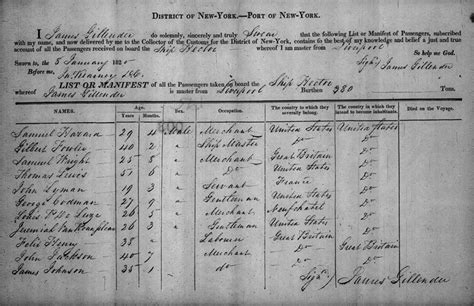 DISTRICT OF NEW-YORK.—PORT OF NEW-YORK.
I James Gillender do solemnly, sincerely and truly Swear that the following List or Manifest of Passengers, subscribed
with my name, and now delivered by me to the Collector of the Customs for the District of New-York, contains to the best of my knowledge and belief a just and true
account of all the Passengers received on board the Ship Hector whereof I am master from Liverpool
So help me God.
Sworn to 5 January 182
Before me, Sign'd James Gillender
LIST OR MANIFEST of all the Passengers taken on board the Ship Hector
whereof James Gillender is master from Liverpool Burthen 380 Tons.
NAMES. AGE. SEX. OCCUPATION. The country to which they severally belong. The country of which they intend to become inhabitants. Died on the Voyage.
Samuel 29 4 Male Merchant United States United States
Gilbert Fowler 40 2 " Ship Master Do Do
Samuel Wright 25 8 " Merchant Great Britain Do
Thomas Lewis 51 6 " Do Do Do
John Lyman 19 3 " Servant France Do
George Codman 27 9 " Gentleman United States Do
26 5 " Merchant Neufchatel Do
Jeremiah 26 3 " Gentleman United States Do
Felix 38 " " Labourer Great Britain Do
John Jackson 40 7 " Merchant Do Great Britain
James Johnson 35 1 " do Do Do
Sign'd James Gillender